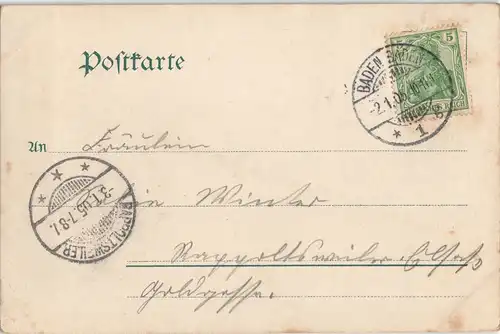 Postkarte
5
BADEN-BADEN
2.1.05
* 1
An Fräulein
Winter
RAPPOLTSWEILER
3.1.05.7-8
Rappoltsweiler Elsaß
Goldgasse.